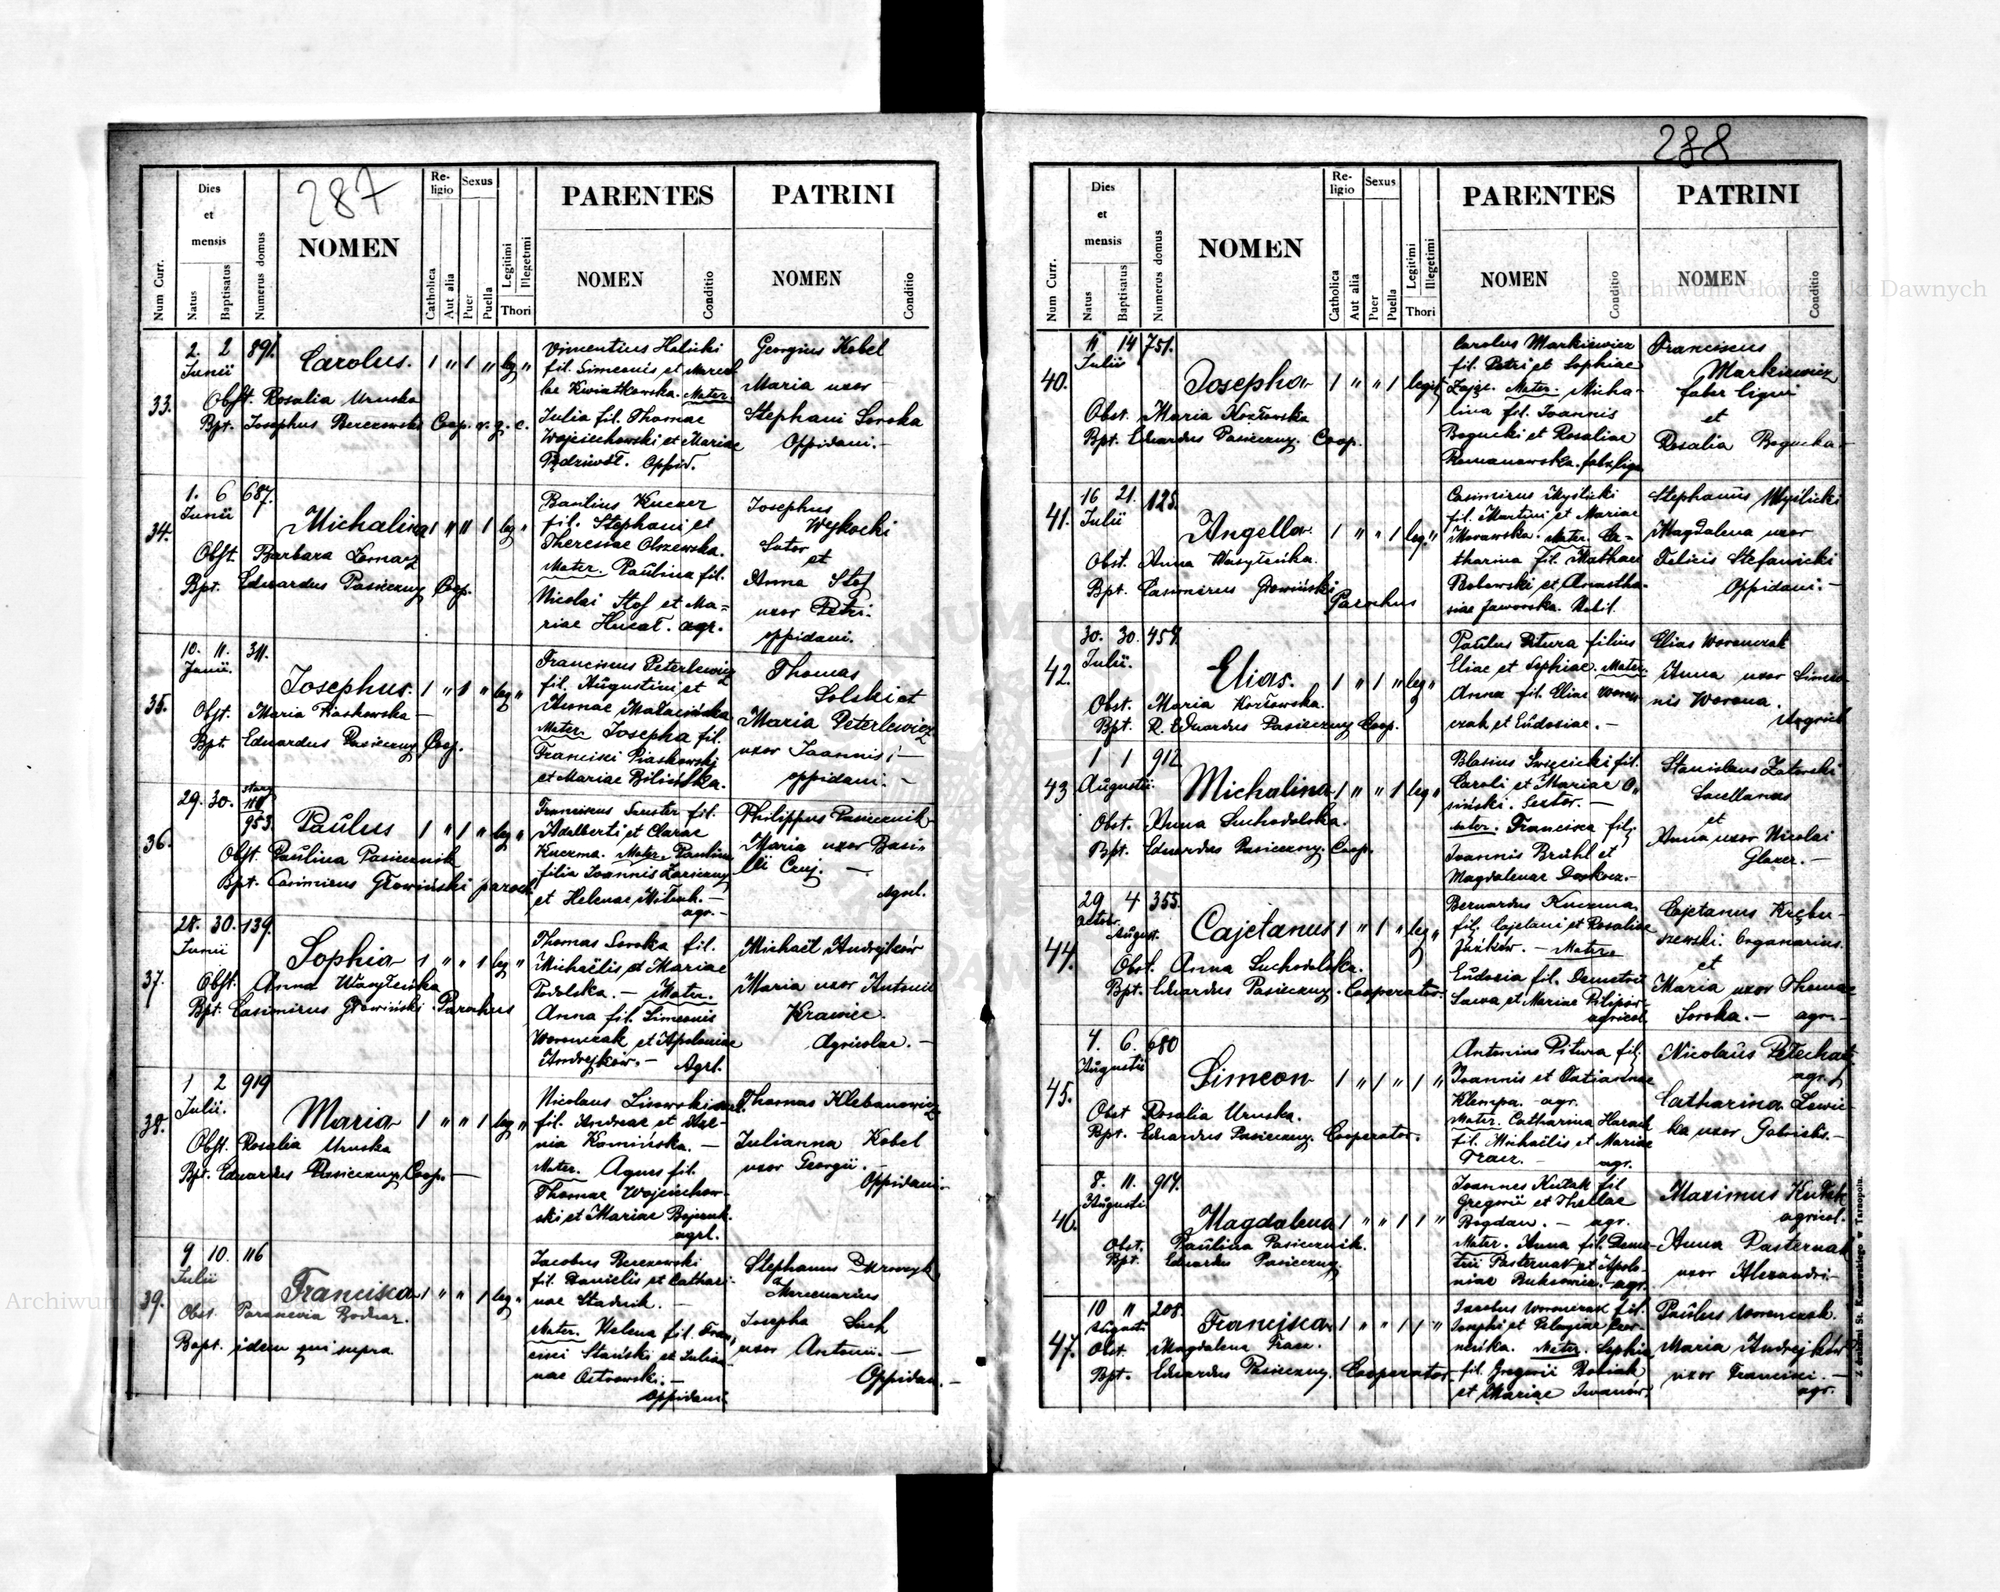 287
Num Curr.
Dies
et
mensis
Natus
Baptisatus
Numerus domus
NOMEN
Re-
ligio
Catholica
Aut alia
Sexus
Puer
Puella
Legitimi
Illegetimi
Thori
PARENTES
NOMEN
Conditio
PATRINI
NOMEN
Conditio
33.
2. 2 891.
Junii
Carolus. 1 " 1 " leg "
Obst. Rosalia Uruska
Bpt. Josephus Berezowski Coop. r. g. c.
Vincentius Halicki
fil. Simeonis et Marcel
lae Kwiatkowska. Mater.
Julia fil. Thomae
Wojciechowski et Mariae
Oppid.
Georgius Kobel
Maria uxor
Stephani Soroka
Oppidani.-
34.
1. 6 687.
Junii
Michalina 1 " " 1 leg "
Obst. Barbara
Bpt. Eduardus Pasieczny Coop.
fil. Stephani et
Theresiae Olszewska.
Mater. Paulina fil.
Nicolai Stof et Ma=
riae agr.
Josephus
Wysocki
Sutor
et
Anna Stof
uxor Petri.
oppidani.
35.
10. 11. 311.
Junii.
Josephus. 1 " 1 " leg "
Obst. Maria Piaskowska -
Bpt. Eduardus Pasieczny Coop.
Franciscus Peterlewicz
fil. Augustini et
Annae
Mater Josepha fil.
Francisci Piaskowski
et Mariae Bilińska.
Thomas
Solski et
Maria Peterlewicz
uxor Joannis; -
oppidani. -
36.
29. 30. 953
Paulus 1 " 1 " leg "
Obst. Paulina Pasiecznik
Bpt. Casimirus Głowiński paroch
Franciscus Szuster fil.
Adalberti et Clarae
Kuczma. Mater. Paulina
filia Joannis
et Helenae -
agr. -
Philippus Pasiecznik
Maria uxor Basi=
lii -
Agrl.
37.
28. 30. 139.
Junii
Sophia 1 " " 1 leg "
Obst. Anna Wasyleńka
Bpt. Casimirus Głowiński Parochus
Thomas Soroka fil.
Michaëlis et Mariae
Podolska. - Mater.
Anna fil. Simeonis
Woronczak et Apoloniae
Andrejków. - Agrl.
Michaël Andrejków
Maria uxor Antonii
Krawiec.
Agricolae. -
38.
1 2 919
Julii.
Maria 1 " " 1 leg "
Obst. Rosalia Uruska
Bpt. Eduardus Pasieczny Coop. -
Nicolaus Lisowski
fil. Andreae et
nia Kamińska. -
Mater. Agnes fil.
Thomae Wojciechow-
ski et Mariae
agrl.
Thomas Klebanowicz
Julianna Kobel
uxor Georgii.
Oppidani.
39.
9 10. 116
Julii
Francisca 1 " " 1 leg "
Obst. Parascevia Bodnar.
Bapt. idem qui supra
Jacobus Berezowski
fil. Danielis et Cathari-
nae Stadnik. -
Mater. Helena fil. Fran
cisci Stański et Julia-
nae Ostrowski. -
Oppidani.
Stephanus
Mercenarius
Josepha
uxor Antonii. -
Oppidan. -
288
Num Curr.
Dies
et
mensis
Natus
Baptisatus
Numerus domus
NOMEN
Re-
ligio
Catholica
Aut alia
Sexus
Puer
Puella
Legitimi
Illegetimi
Thori
PARENTES
NOMEN
Conditio
PATRINI
NOMEN
Conditio
40.
11 14 751.
Julii
Josepha 1 " " 1 legit
Obst. Maria Kozłowska
Bpt. Eduardus Pasieczny. Coop.
Carolus Markiewicz
fil. Petri et Sophiae
Zając. Mater. Micha-
lina fil. Joannis
Bogucki et Rosaliae
Romanowska. fab. lign
Franciscus
Markiewicz
faber ligni
et
Rosalia Bogucka -
41.
16 21. 125.
Julii
Angella. 1 " " 1 leg. "
Obst. Anna Wasyleńka.
Bpt. Casimirus Głowiński
Parochus
Casimirus Myślicki
fil. Martini et Mariae
Morawska. Mater. Ca-
tharina fil. Mathaei
Bobowski et Anasta-
siae Jaworska. Nobil.
Stephanus Myślicki
Magdalena uxor
Felicis Stefanicki
Oppidani. -
42.
30. 30. 454.
Julii.
Elias. 1 " 1 " leg "
Obst. Maria Kozłowska.
Bpt. R. Eduardus Pasieczny Coop.
Paulus Pitura filius
Eliae et Sophiae. Mater.
Anna fil. Eliae Woron
czak et Eudosiae. -
Elias Woronczak
Anna uxor Simeo-
nis Worona.
Agricol
43
1 1 912
Augusti.
Michalina 1 " " 1 leg "
Obst. Anna Suchodolska.
Bpt. Eduardus Pasieczny. Coop.
Blasius Święcicki fil.
Caroli et Mariae O„
siński. Sartor. -
Mater. Francisca fil.
Joannis Brühl et
Magdalenae
Stanislaus Zatorski
et
Anna uxor Nicolai
Glazer. -
44.
29 4 355.
Octobr. August.
Cajetanus 1 " 1 " leg "
Obst. Anna Suchodolska.
Bpt. Eduardus Pasieczny. Cooperator.
Bernardus Kuczma
fil. Cajetani et Rosaliae
Jużków. - Mater
Eudosia fil. Demetrii
Sawa et Mariae Pilipów-
agricol.
Cajetanus Krębu-
szewski. Organarius.
et
Maria uxor Thomae
Soroka. - agr. -
45.
4. 6. 680
Augusti
Simeon 1 " 1 " 1 "
Obst Rosalia Uruska.
Bpt. Eduardus Pasieczny. Cooperator.
Antonius Pitura fil.
Joannis et Tatiannae
Klempa. agr.
Mater. Catharina
fil. Michaëlis et Mariae
Fracz. - agr.
Nicolaus
agr.
Catharina Lewic-
ka uxor Gabrielis. -
46.
8. 11. 914.
Augusti
Magdalena 1 " " 1 1 "
Obst. Paulina Pasiecznik.
Bpt. Eduardus Pasieczny.
Joannes Kutak fil
Gregorii et Theclae
Bogdan. - agr.
Mater. Anna fil. Deme
trii Pasternak et Apolo-
niae Bukowicz. - agr.
Maximus Kutak
agricol.
Anna Pasternak
uxor Alexandri -
47.
10 11 208.
August
Francisca 1 " " 1 1 "
Obst. Magdalena Fracz.
Bpt. Eduardus Pasieczny. Cooperator.
Jacobus Woronczak fil.
Josephi et Pelagiae
Mater. Sophia
fil. Gregorii Bosiak
et Mariae Iwanów.
Paulus Woronczak.
Maria Andrejków
uxor Francisci. -
agr.
Z drukarni St. Kossowskiego w Tarnopolu.
Archiwum Główne Akt Dawnych
Archiwum Główne Akt Dawnych